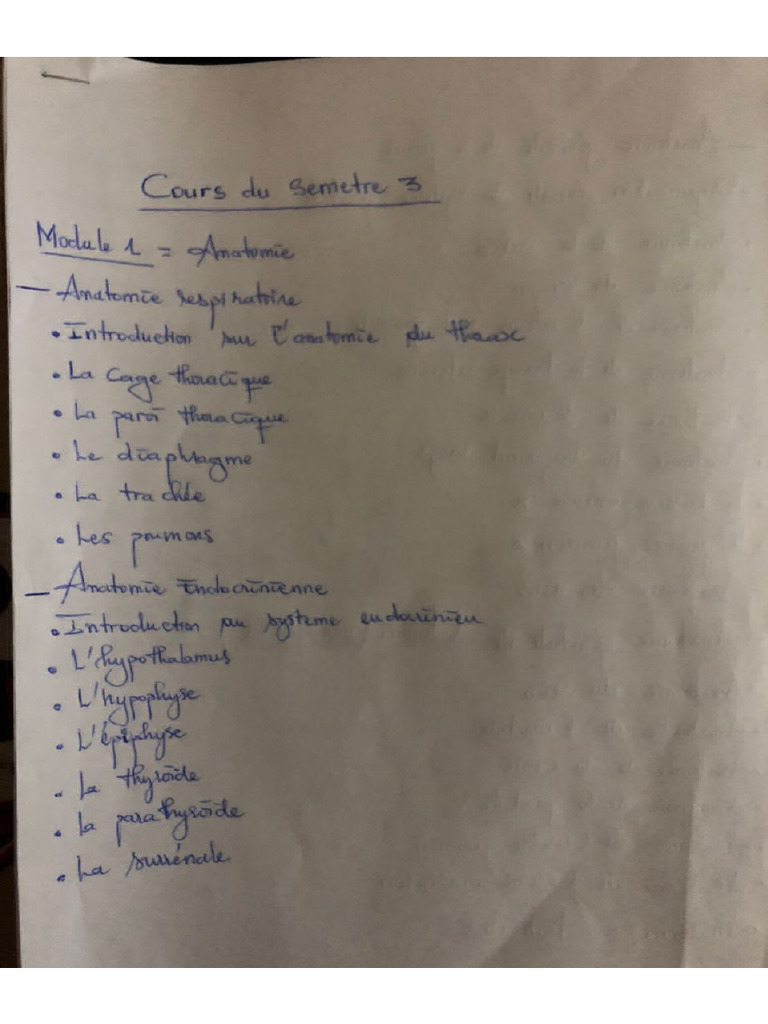 Cours du semetre 3
Module 1 = Anatomie
— Anatomie respiratoire
• Introduction sur l'anatomie du thorax
• La cage thoracique
• La paroi thoracique
• Le diaphragme
• La trachée
• Les poumons
— Anatomie Endocrinienne
• Introduction au système endocrinien
• L'hypothalamus
• L'hypophyse
• L'épiphyse
• La thyroïde
• La parathyroïde
• La surrénale